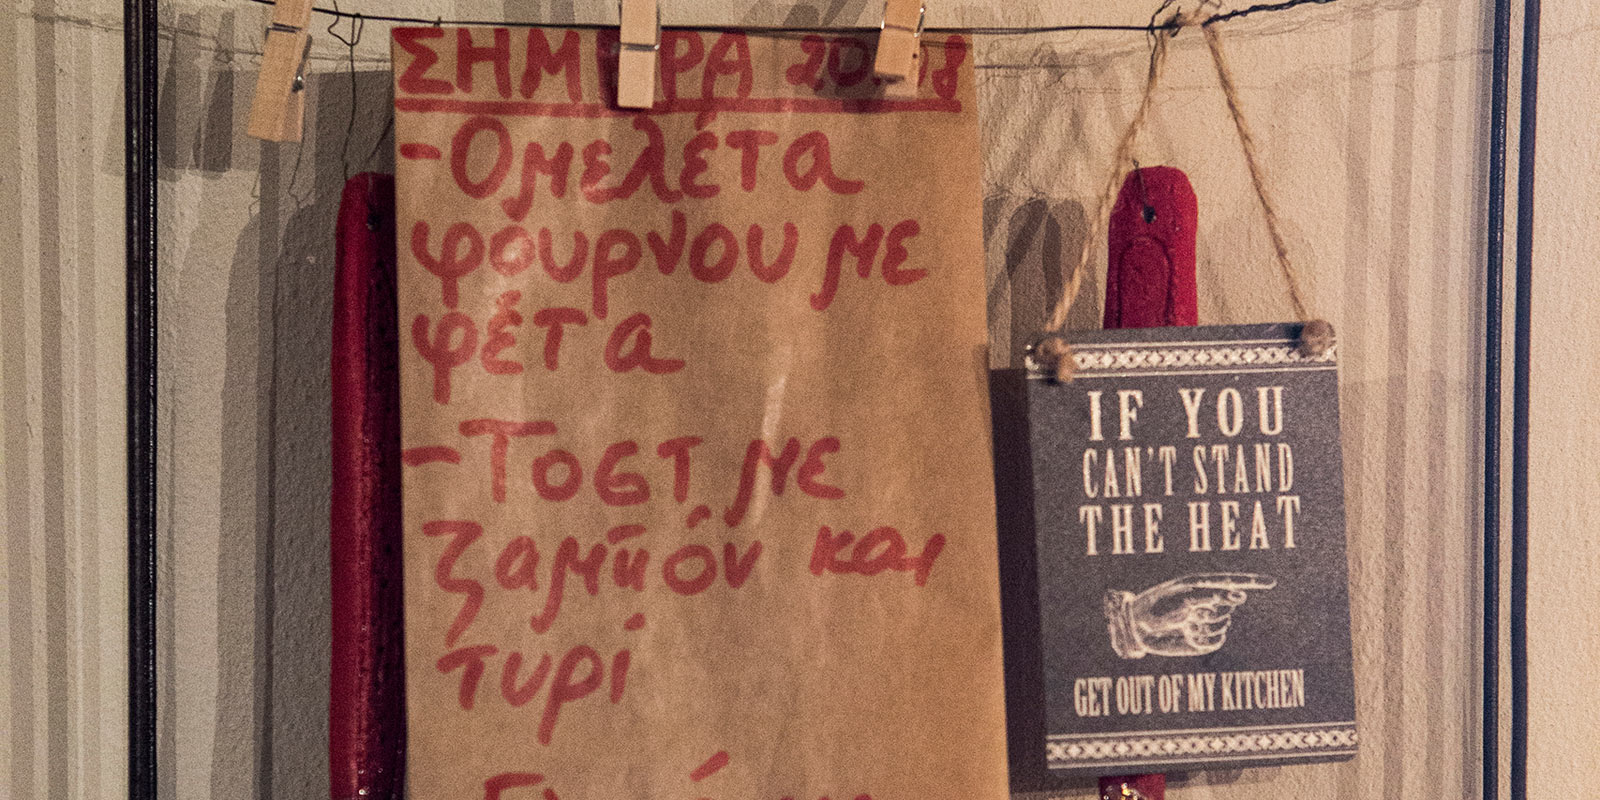 ΣΗΜΕΡΑ
-Ομελέτα
φούρνου με
φέτα
-Τοστ με
ζαμπόν και
τυρί
IF YOU
CAN'T STAND
THE HEAT
GET OUT OF MY KITCHEN